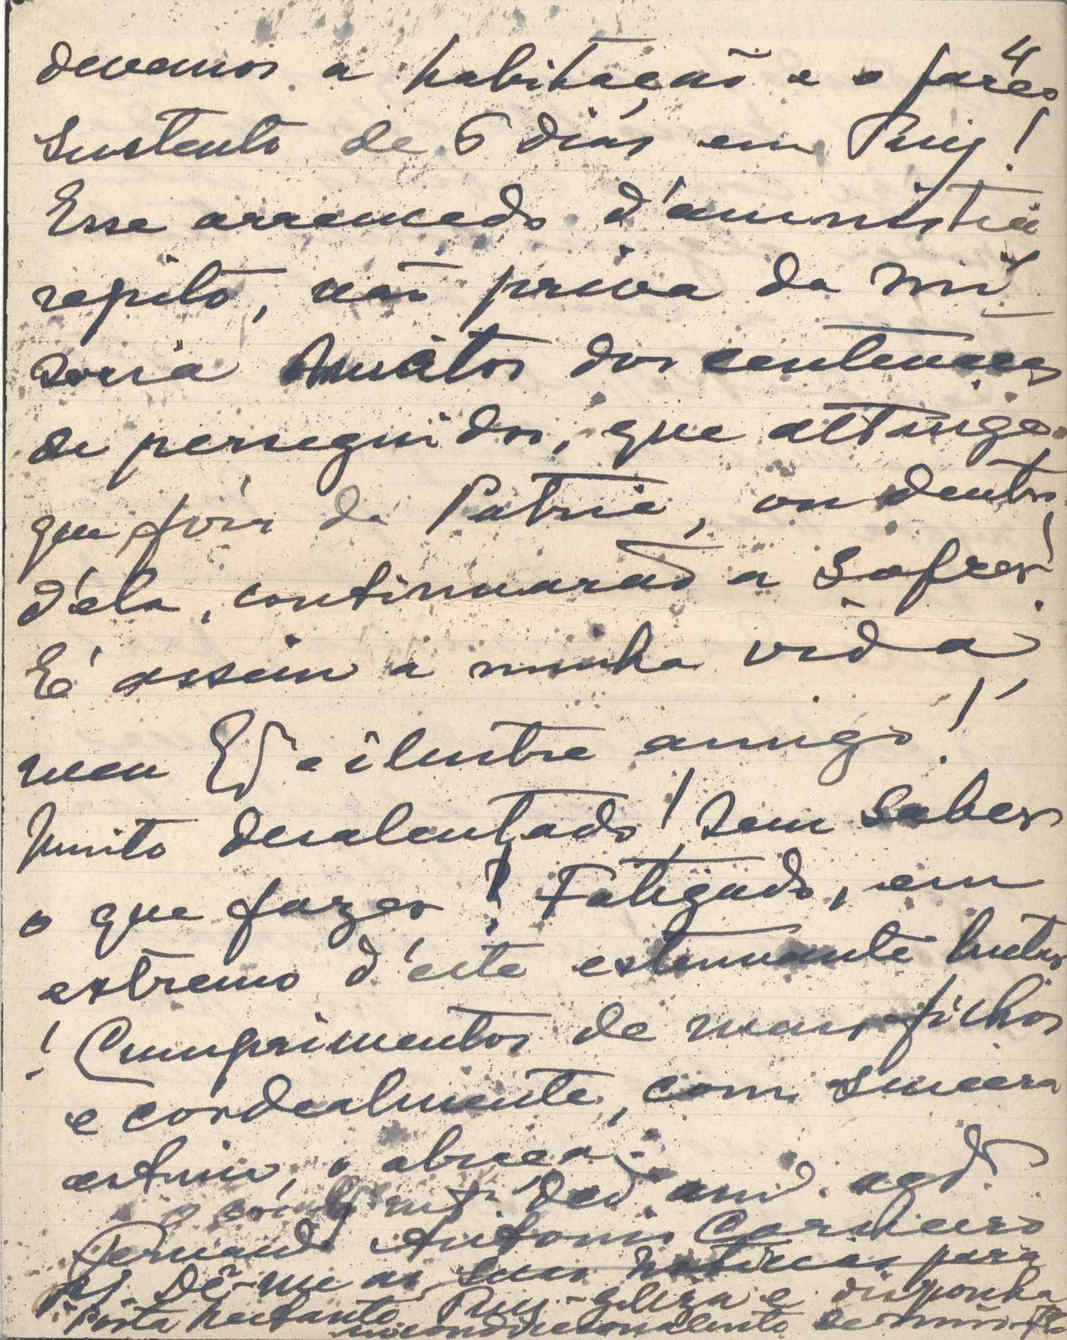 4
devemos a habitação e o parco
sustento de 6 dias em Tuy!
Esse arremedo d'amnistia
repito, não priva da mi
seria muitos dos centenares
de perseguidos, que attinge.
que fóra da Patria, ou dentro
d'ela, continuarão a sofrer!
E' assim a minha vida,
meu Ex e ilustre amigo!
Muito desalentado! Sem saber
o que fazer! Fatigado, em
extremo d'este estenuante lutar
! Cumprimentos de meus filhos
e cordealmente, com sincera
estima, o abraça
o am.º agd.º
Antonio Carneiro
Dê-me as suas noticias para
Posta restante Tuy - e disponha
incondicionalmente de